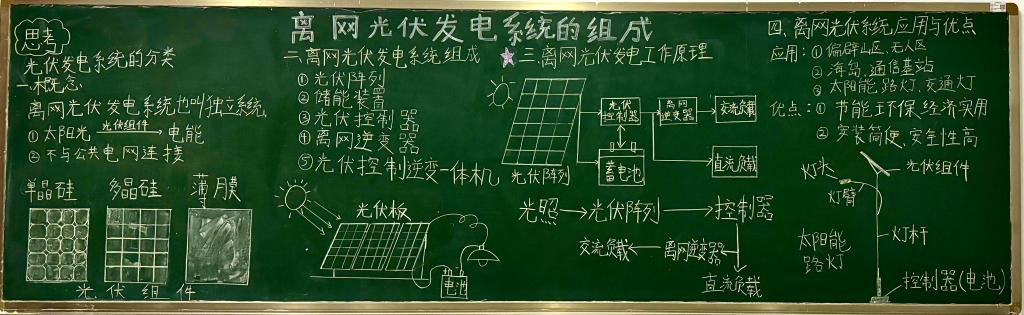 离网光伏发电系统的组成
思考
光伏发电系统的分类
一.概念
离网光伏发电系统也叫独立系统
①太阳光 光伏组件 电能
②不与公共电网连接
单晶硅 多晶硅 薄膜
光伏组件
二.离网光伏发电系统组成
①光伏阵列
②储能装置
③光伏控制器
④离网逆变器
⑤光伏控制逆变一体机
光伏板
电池
三.离网光伏发电工作原理
光伏控制器
离网逆变器
交流负载
蓄电池
直流负载
光伏阵列
光照 光伏阵列 控制器
交流负载 离网逆变器
直流负载
四.离网光伏系统应用与优点
应用：①偏僻山区、无人区
②海岛、通信基站
③太阳能路灯、交通灯
优点：①节能环保、经济实用
②安装简便、安全性高
灯头
光伏组件
灯臂
灯杆
太阳能
路灯
控制器(电池)